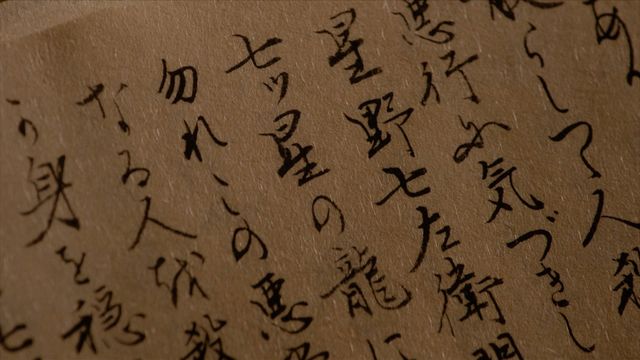 らして人殺
悪行に気づきし
星野七左衛門
七ツ星の龍に
勿れこの悪
なる人を殺
身を穏
七